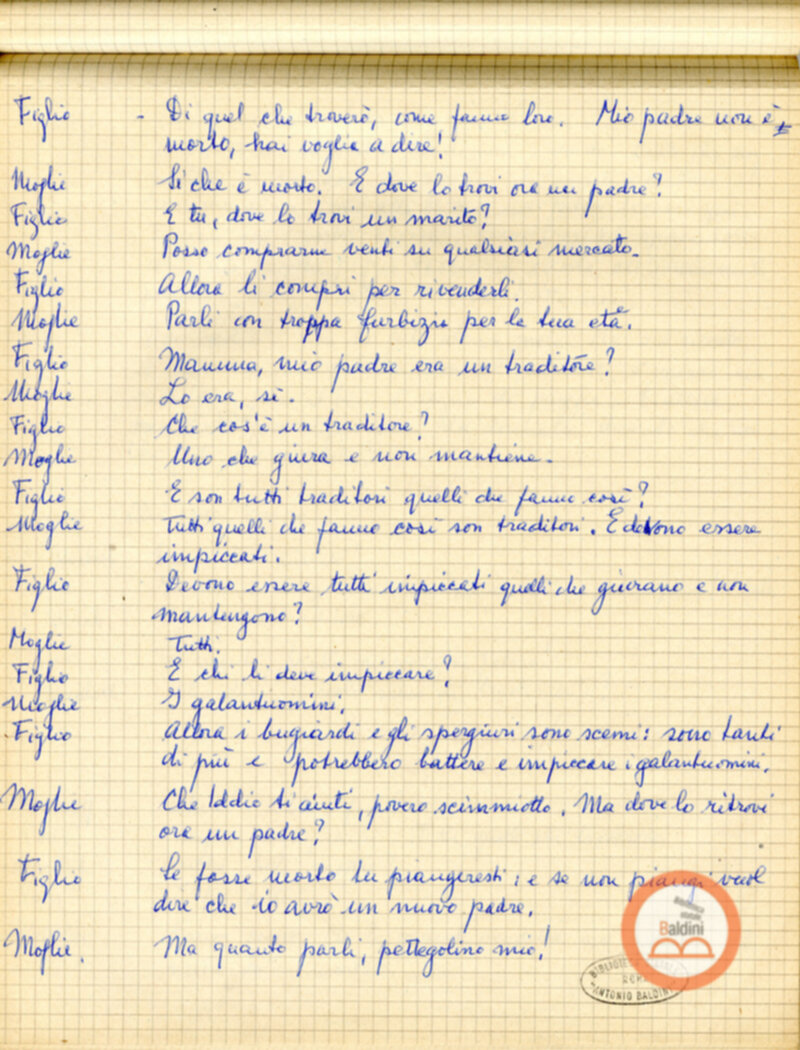 Figlio - Di quel che troverò, come fanno loro. Mio padre non è
morto, hai voglia a dire!
Moglie Sì che è morto. E dove lo trovi ora un padre?
Figlio E tu, dove lo trovi un marito?
Moglie Posso comprarne venti su qualsiasi mercato.
Figlio Allora li compri per rivenderli.
Moglie Parli con troppa furbizia per la tua età.
Figlio Mamma, mio padre era un traditore?
Moglie Lo era, sì.
Figlio Che cos'è un traditore?
Moglie Uno che giura e non mantiene.
Figlio E son tutti traditori quelli che fanno così?
Moglie Tutti quelli che fanno così son traditori. E devono essere
impiccati.
Figlio Devono essere tutti impiccati quelli che giurano e non
mantengono?
Moglie Tutti.
Figlio E chi li deve impiccare?
Moglie I galantuomini.
Figlio Allora i bugiardi e gli spergiuri sono scemi: sono tanti
di più e potrebbero battere e impiccare i galantuomini.
Moglie Che Iddio ti aiuti, povero scimmiotto. Ma dove lo ritrovi
ora un padre?
Figlio Se fosse morto tu piangeresti: e se non piangi vuol
dire che io avrò un nuovo padre.
Moglie. Ma quanto parli, pettegolino mio!
Biblioteca
statale
Baldini
ANTONIO BALDINI